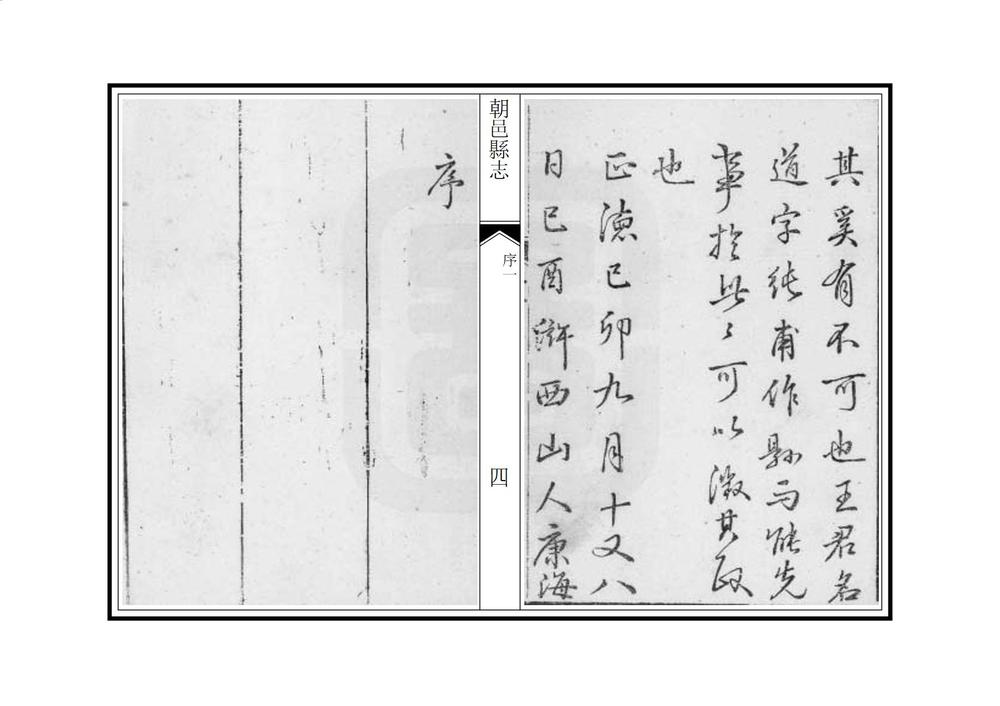 其奚有不可也王君名
道字純甫作縣而能先
事於此〻可以澂其政
也
正德己卯九月十又八
日己酉滸西山人康海
序
朝邑縣志
序一
四